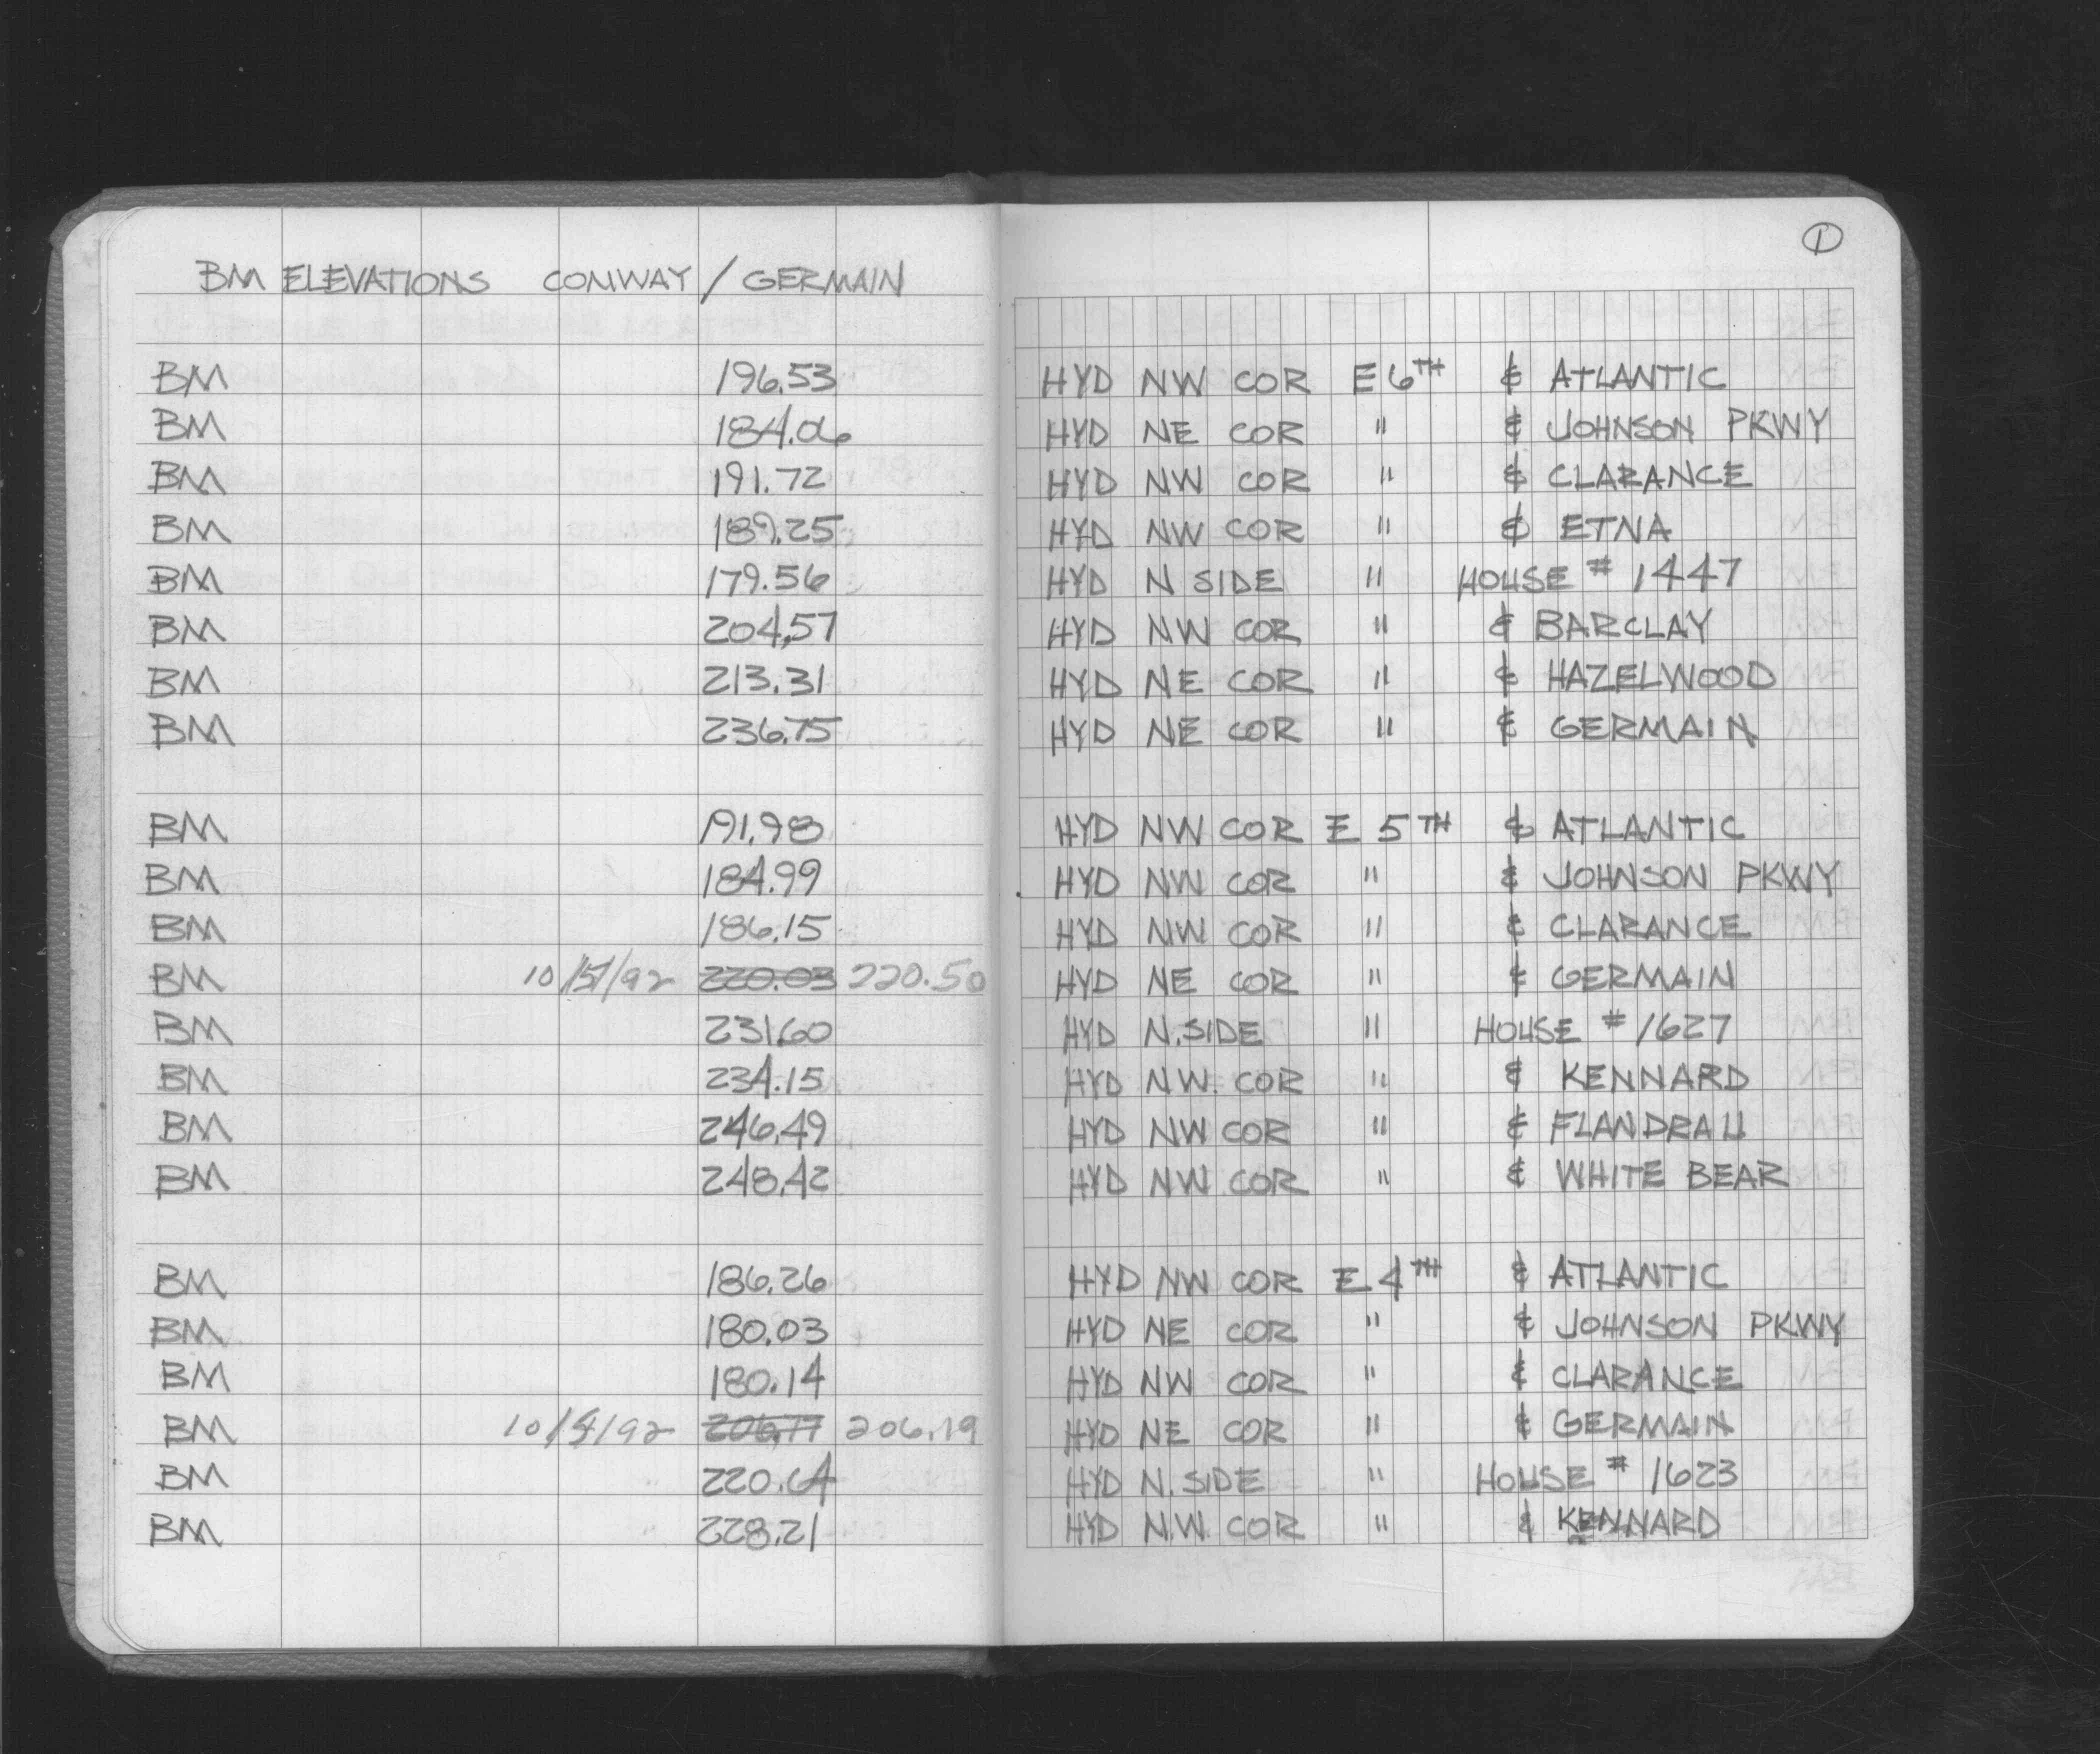 ①
BM ELEVATIONS CONWAY / GERMAIN
BM 196.53 HYD NW COR E 6TH & ATLANTIC
BM 184.06 HYD NE COR " & JOHNSON PKWY
BM 191.72 HYD NW COR " & CLARANCE
BM 189.25 HYD NW COR " & ETNA
BM 179.56 HYD N SIDE " HOUSE # 1447
BM 204.57 HYD NW COR " & BARCLAY
BM 213.31 HYD NE COR " & HAZELWOOD
BM 236.75 HYD NE COR " & GERMAIN
BM 191.98 HYD NW COR E 5TH & ATLANTIC
BM 184.99 HYD NW COR " & JOHNSON PKWY
BM 186.15 HYD NW COR " & CLARANCE
BM 10/5/92 220.03 220.50 HYD NE COR " & GERMAIN
BM 231.60 HYD N. SIDE " HOUSE # 1627
BM 234.15 HYD N.W. COR " & KENNARD
BM 246.49 HYD NW COR " & FLANDRAU
BM 248.42 HYD NW COR " & WHITE BEAR
BM 186.26 HYD NW COR E 4TH & ATLANTIC
BM 180.03 HYD NE COR " & JOHNSON PKWY
BM 180.14 HYD NW COR " & CLARANCE
BM 10/5/92 206.77 206.19 HYD NE COR " & GERMAIN
BM 220.64 HYD N. SIDE " HOUSE # 1623
BM 228.21 HYD N.W. COR " & KENNARD